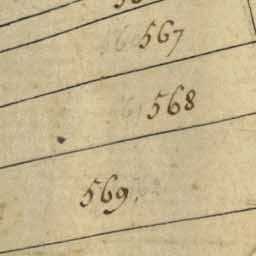 567
568
569.